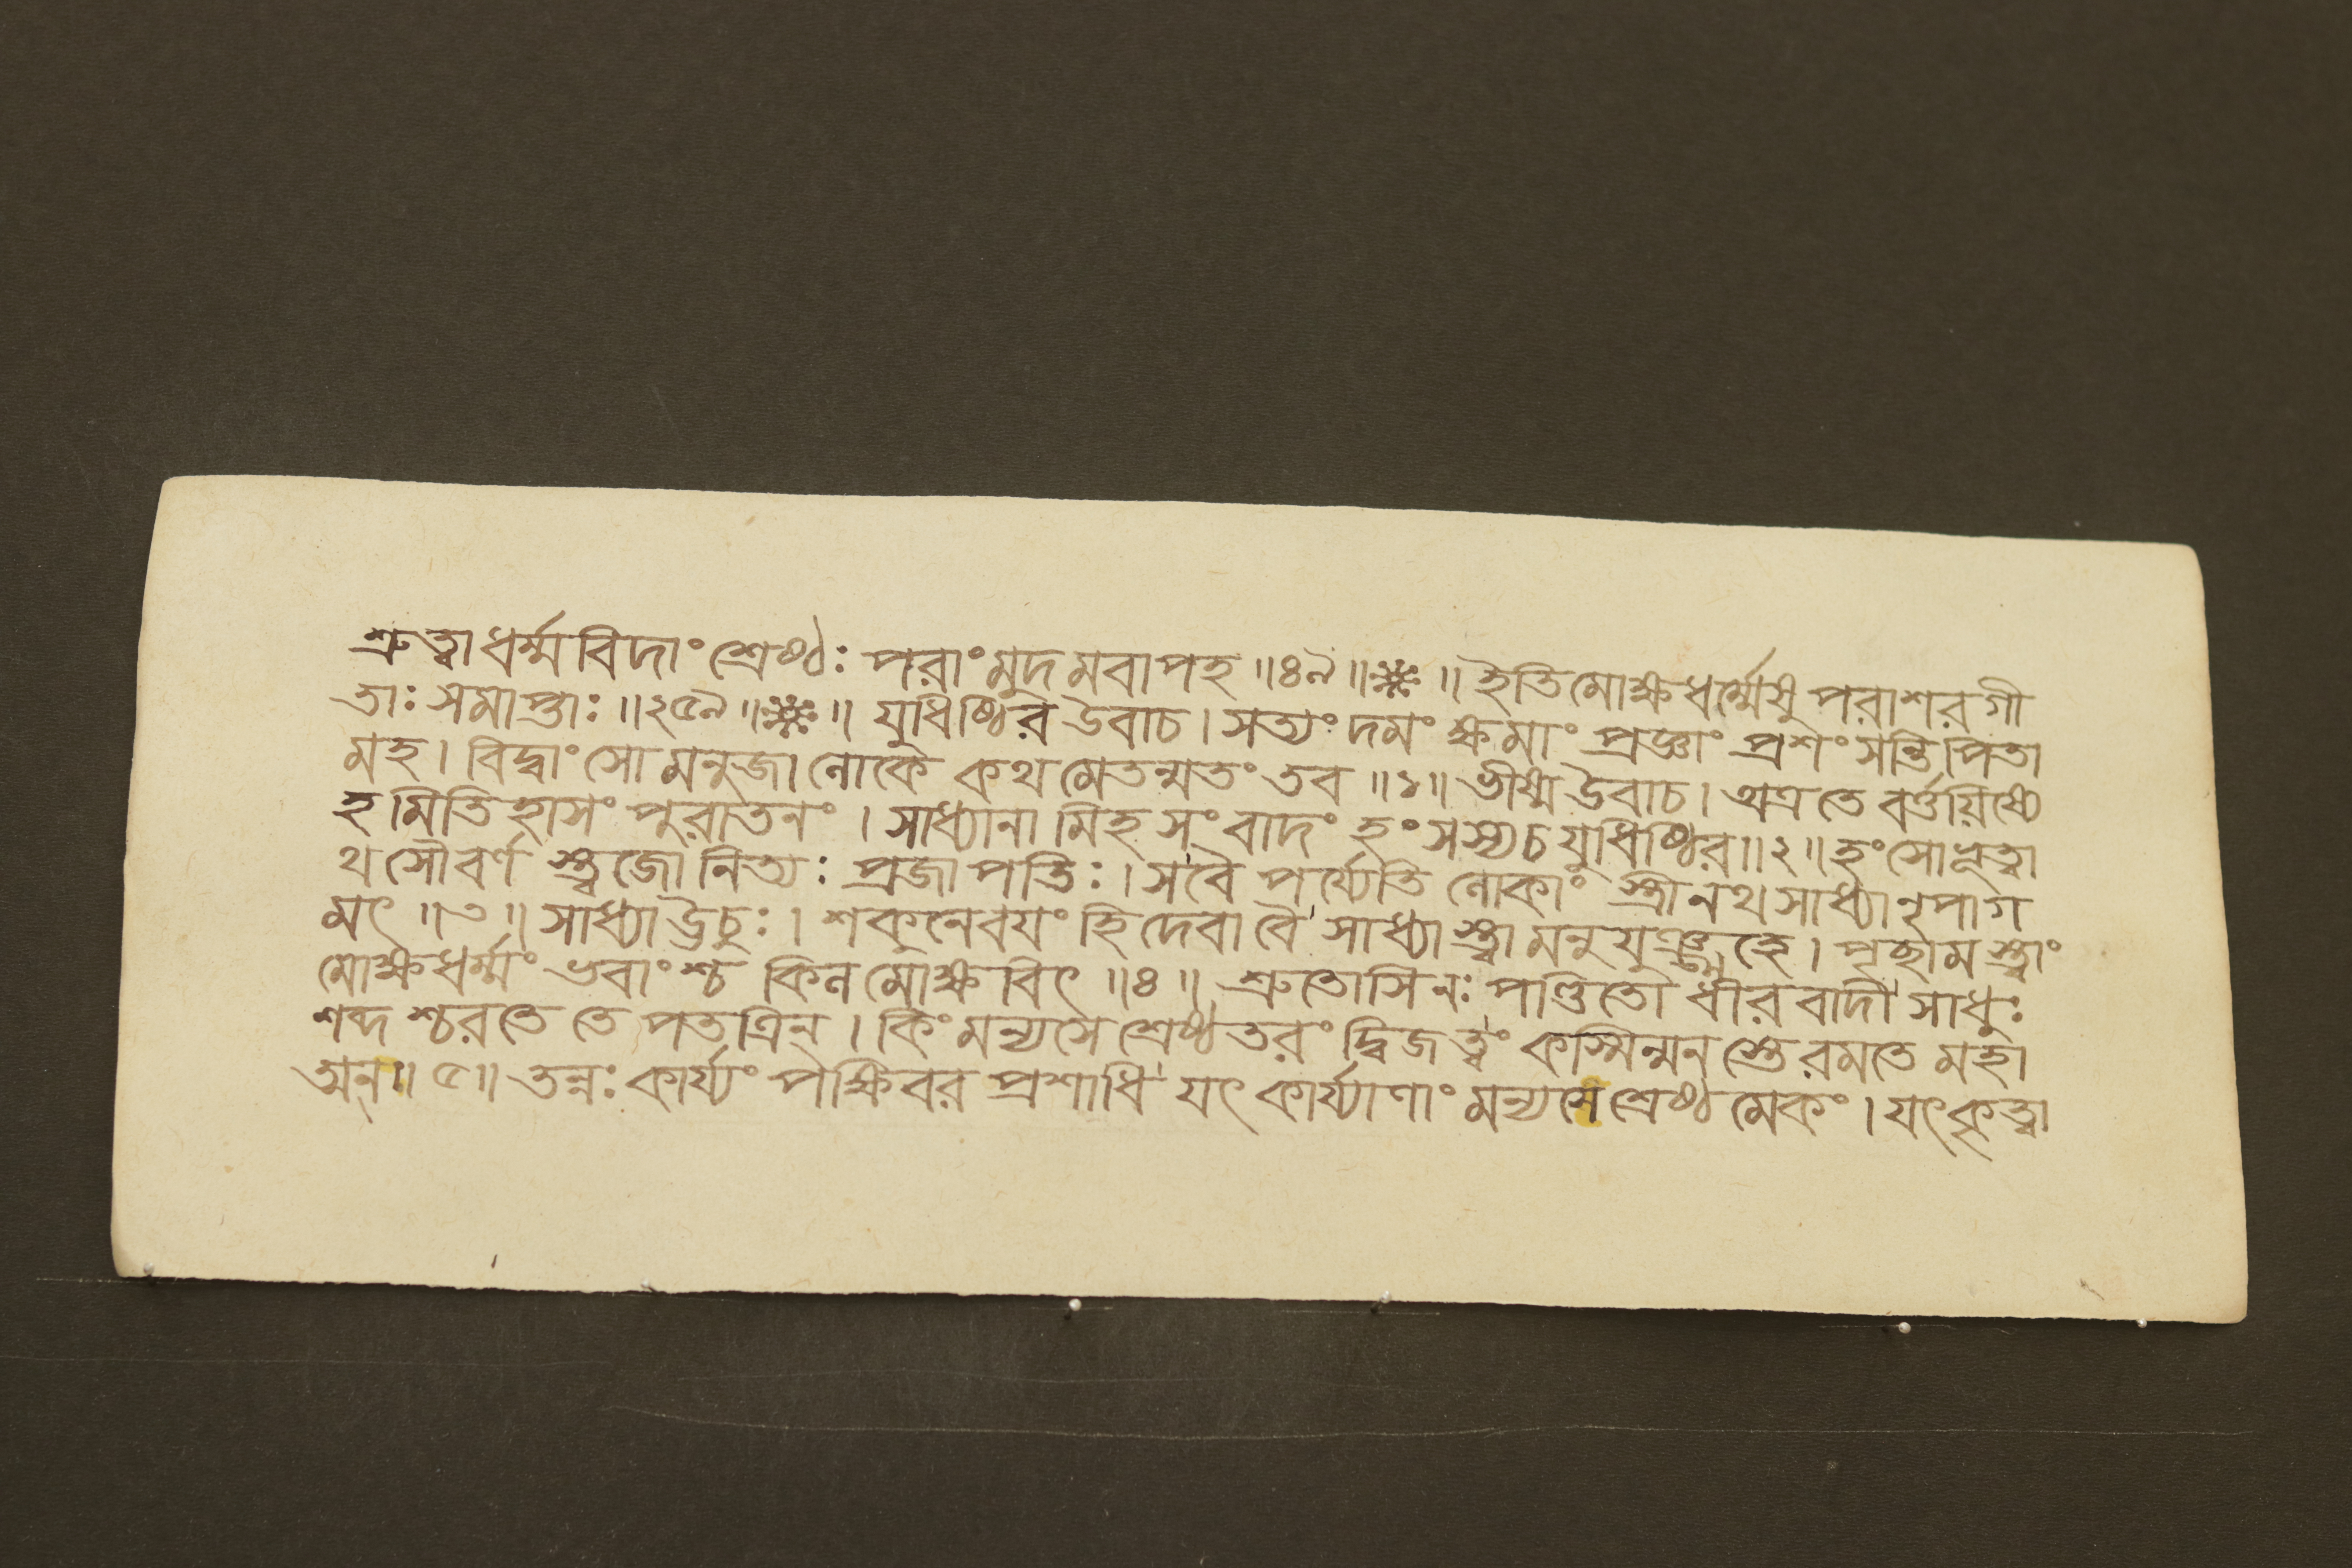 শ্রুত্বাধর্ম্মবিদাং শ্রেষ্ঠঃ পরাং মুদমবাপহ ॥৪৯॥❋॥ ইতিমোক্ষধর্ম্মেষু পরাশরগী
তাঃ সমাপ্তাঃ ॥২৫৯॥❋॥ যুধিষ্ঠির উবাচ । সত্যং দমং ক্ষমাং প্রজ্ঞাং প্রশংসন্তি পিতা
মহ । বিদ্বাংসো মনুজা লোকে কথমেতন্মতং তব ॥১॥ ভীষ্ম উবাচ । অত্রতে বর্ত্তয়িষ্যে
হমিতিহাসং পুরাতনং । সাধ্যানামিহ সংবাদং হংসস্যচ যুধিষ্ঠির ॥২॥ হংসোভূত্বা
থসৌবর্ণ স্ত্বজো নিত্যঃ প্রজাপতিঃ । সবৈ পর্য্যেতি লোকাং স্ত্রীনথ সাধ্যানুপাগ
মৎ ॥৩॥ সাধ্যা ঊচুঃ । শকুনেবয়ং হিদেবা বৈ সাধ্যাস্ত্বামনুযুঞ্জ্মহে । পৃচ্ছামস্ত্বাং
মোক্ষধর্ম্মং ভবাংশ্চ কিল মোক্ষবিৎ ॥৪॥ শ্রুতোসিনঃ পণ্ডিতো ধীরবাদী সাধুঃ
শব্দ শ্চরতে তে পতত্রিন্ । কিং মন্যসে শ্রেষ্ঠতরং দ্বিজত্বং কস্মিন্মন স্তে রমতে মহা
ত্মন্॥৫॥ তন্নঃ কার্য্যং পক্ষিবর প্রশাধি যৎ কার্য্যাণাং মন্যসে শ্রেষ্ঠমেকং । যৎকৃত্বা